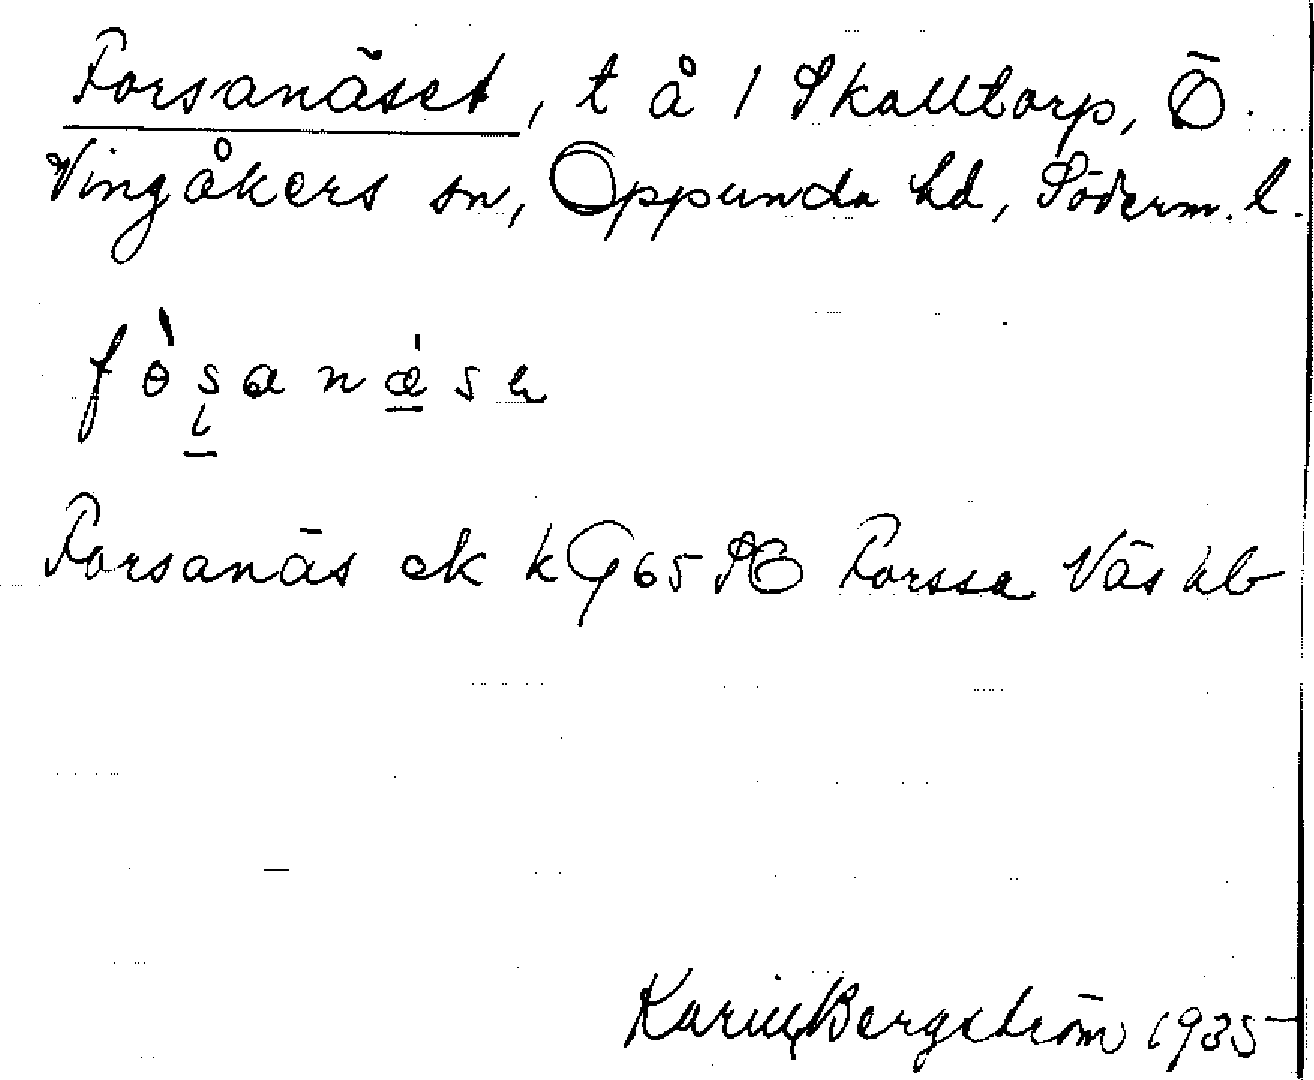 Forsanäset, t å 1 Skalltorp, Ö.
Vingåkers sn, Oppunda hd, Söderm. l.
fɵ̀s̨anǽsɛ
Forsanäs ek k G 65 SO Forssa Väs hb
Karin Bergström 1935